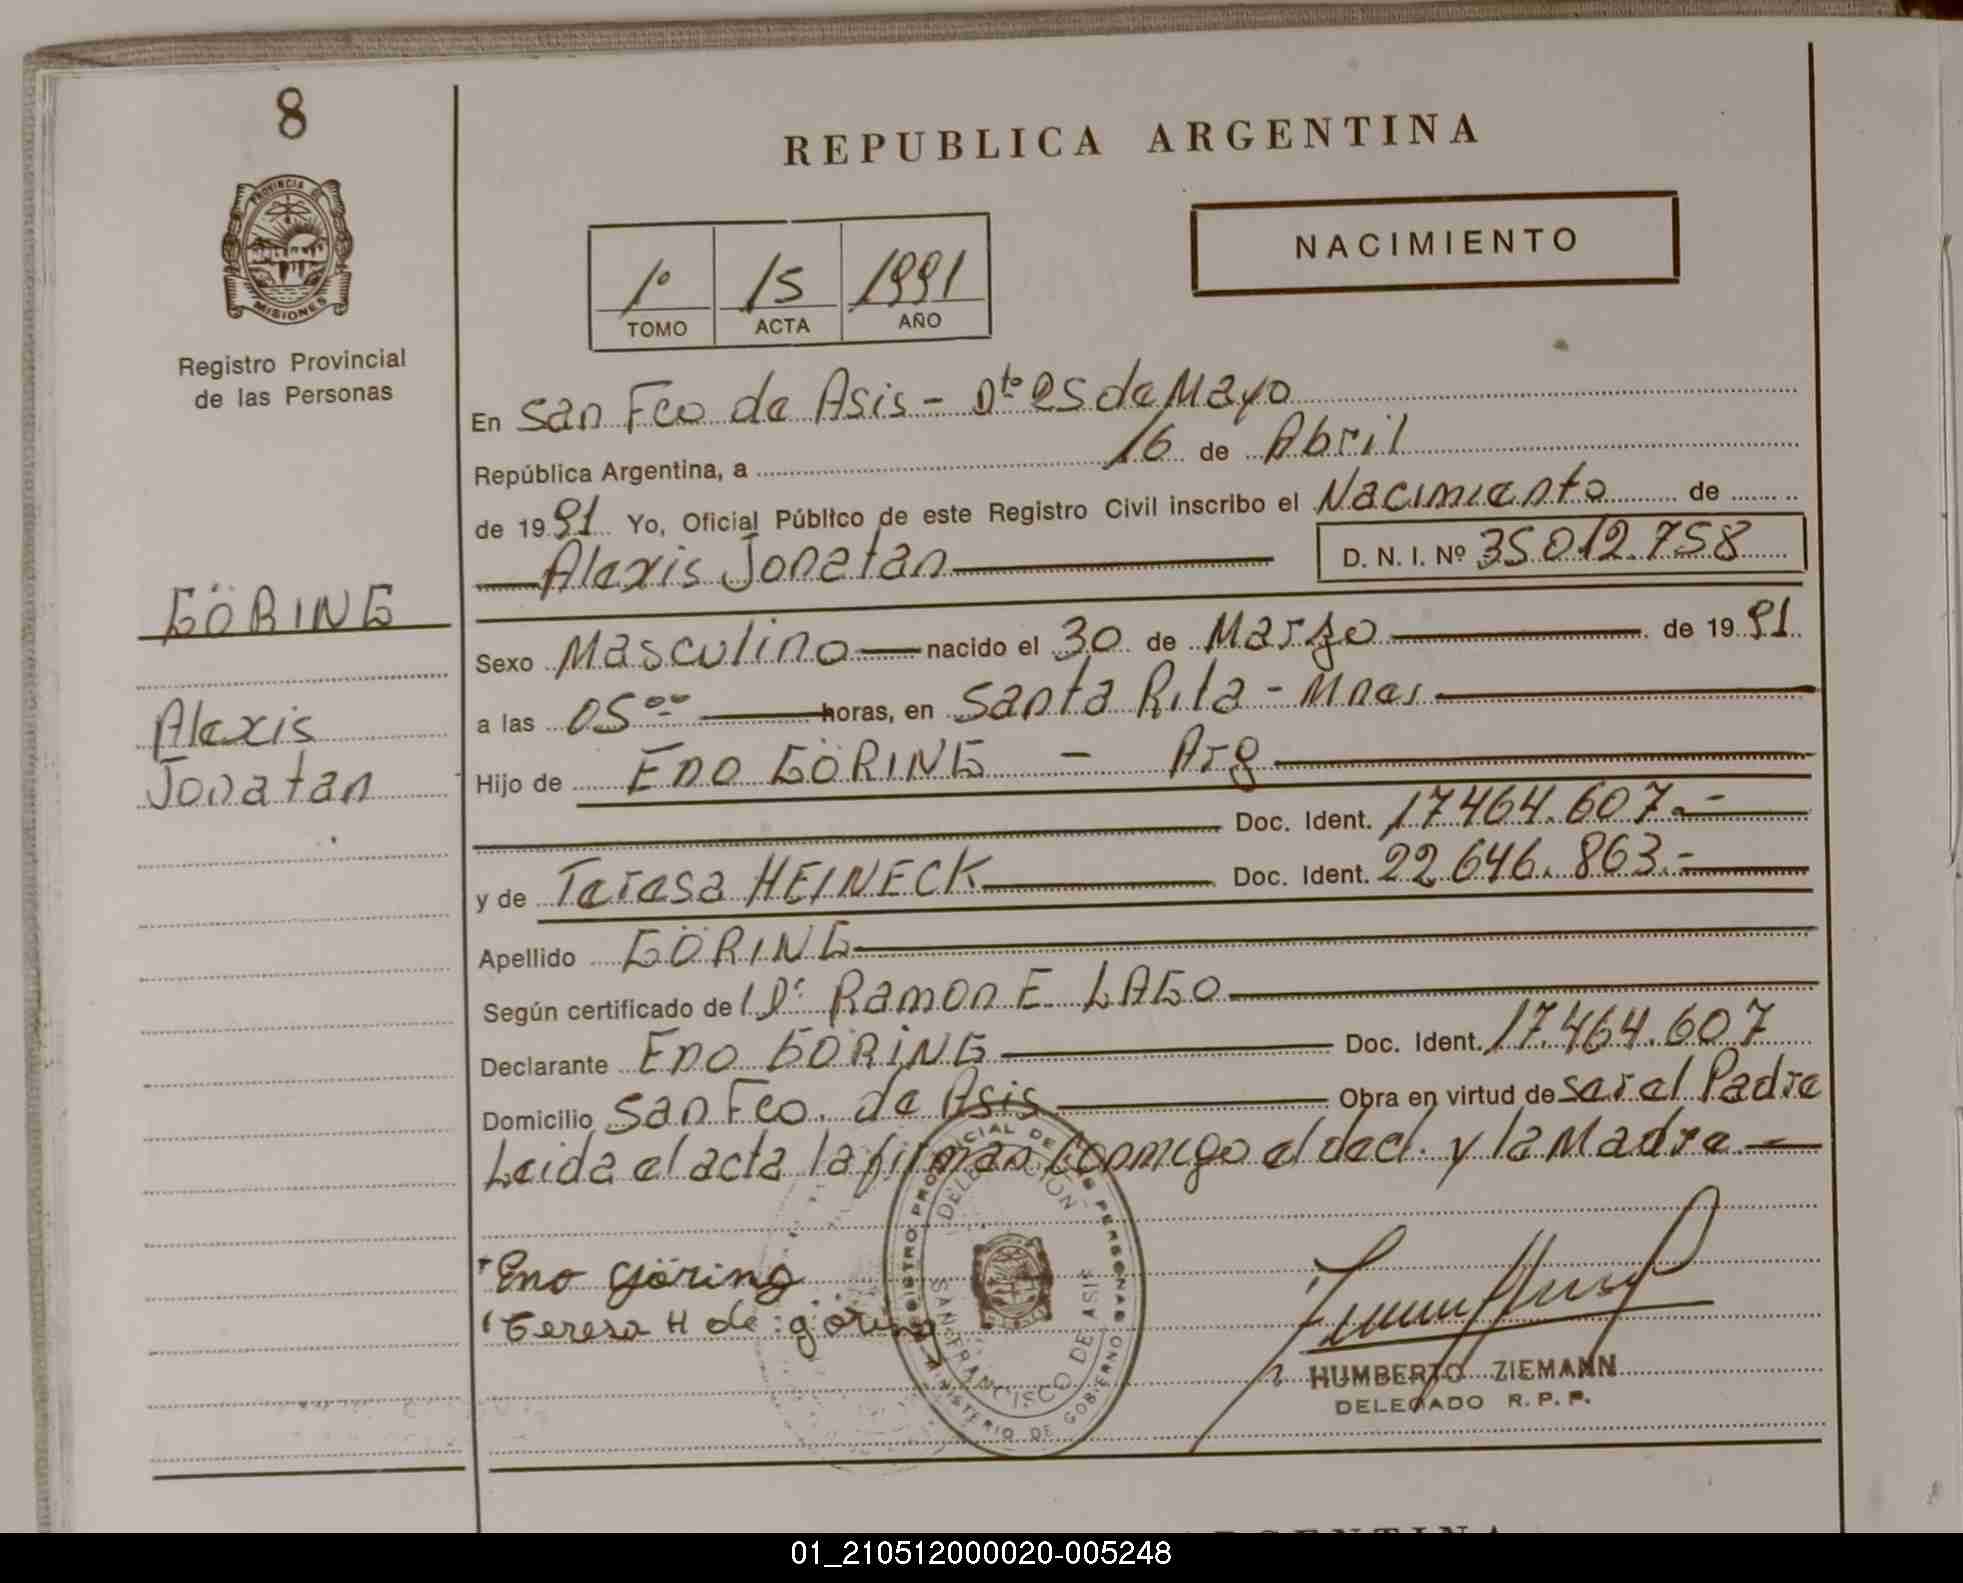 8
PROVINCIA DE
MISIONES
Registro Provincial
de las Personas
GÖRING
Alexis
Jonatan
REPUBLICA ARGENTINA
NACIMIENTO
1º 15 1991
TOMO ACTA AÑO
En San Fco de Asis - Dto 25 de Mayo
República Argentina, a 16 de Abril
de 1991 Yo, Oficial Público de este Registro Civil inscribo el Nacimiento de
Alexis Jonatan D. N. I. Nº 35012.758
Sexo Masculino nacido el 30 de Marzo de 1991
a las 05 00 horas, en Santa Rita - Mnes.
Hijo de Eno GÖRING - Arg
Doc. Ident. 17464.607.-
y de Teresa HEINECK Doc. Ident. 22646.863.-
Apellido GÖRING
Según certificado de l Dr. Ramon E. LAGO
Declarante Eno GÖRING Doc. Ident. 17.464.607
Domicilio San Fco. de Asis Obra en virtud de ser el Padre
Leida el acta la firman conmigo el decl. y la Madre
Eno Göring
Teresa H de göring
REGISTRO PROVINCIAL DE LAS PERSONAS
DELEGACION
SAN FRANCISCO DE ASIS
MINISTERIO DE GOBIERNO
HUMBERTO ZIEMANN
DELEGADO R. P. P.
ARGENTINA
01_210512000020-005248